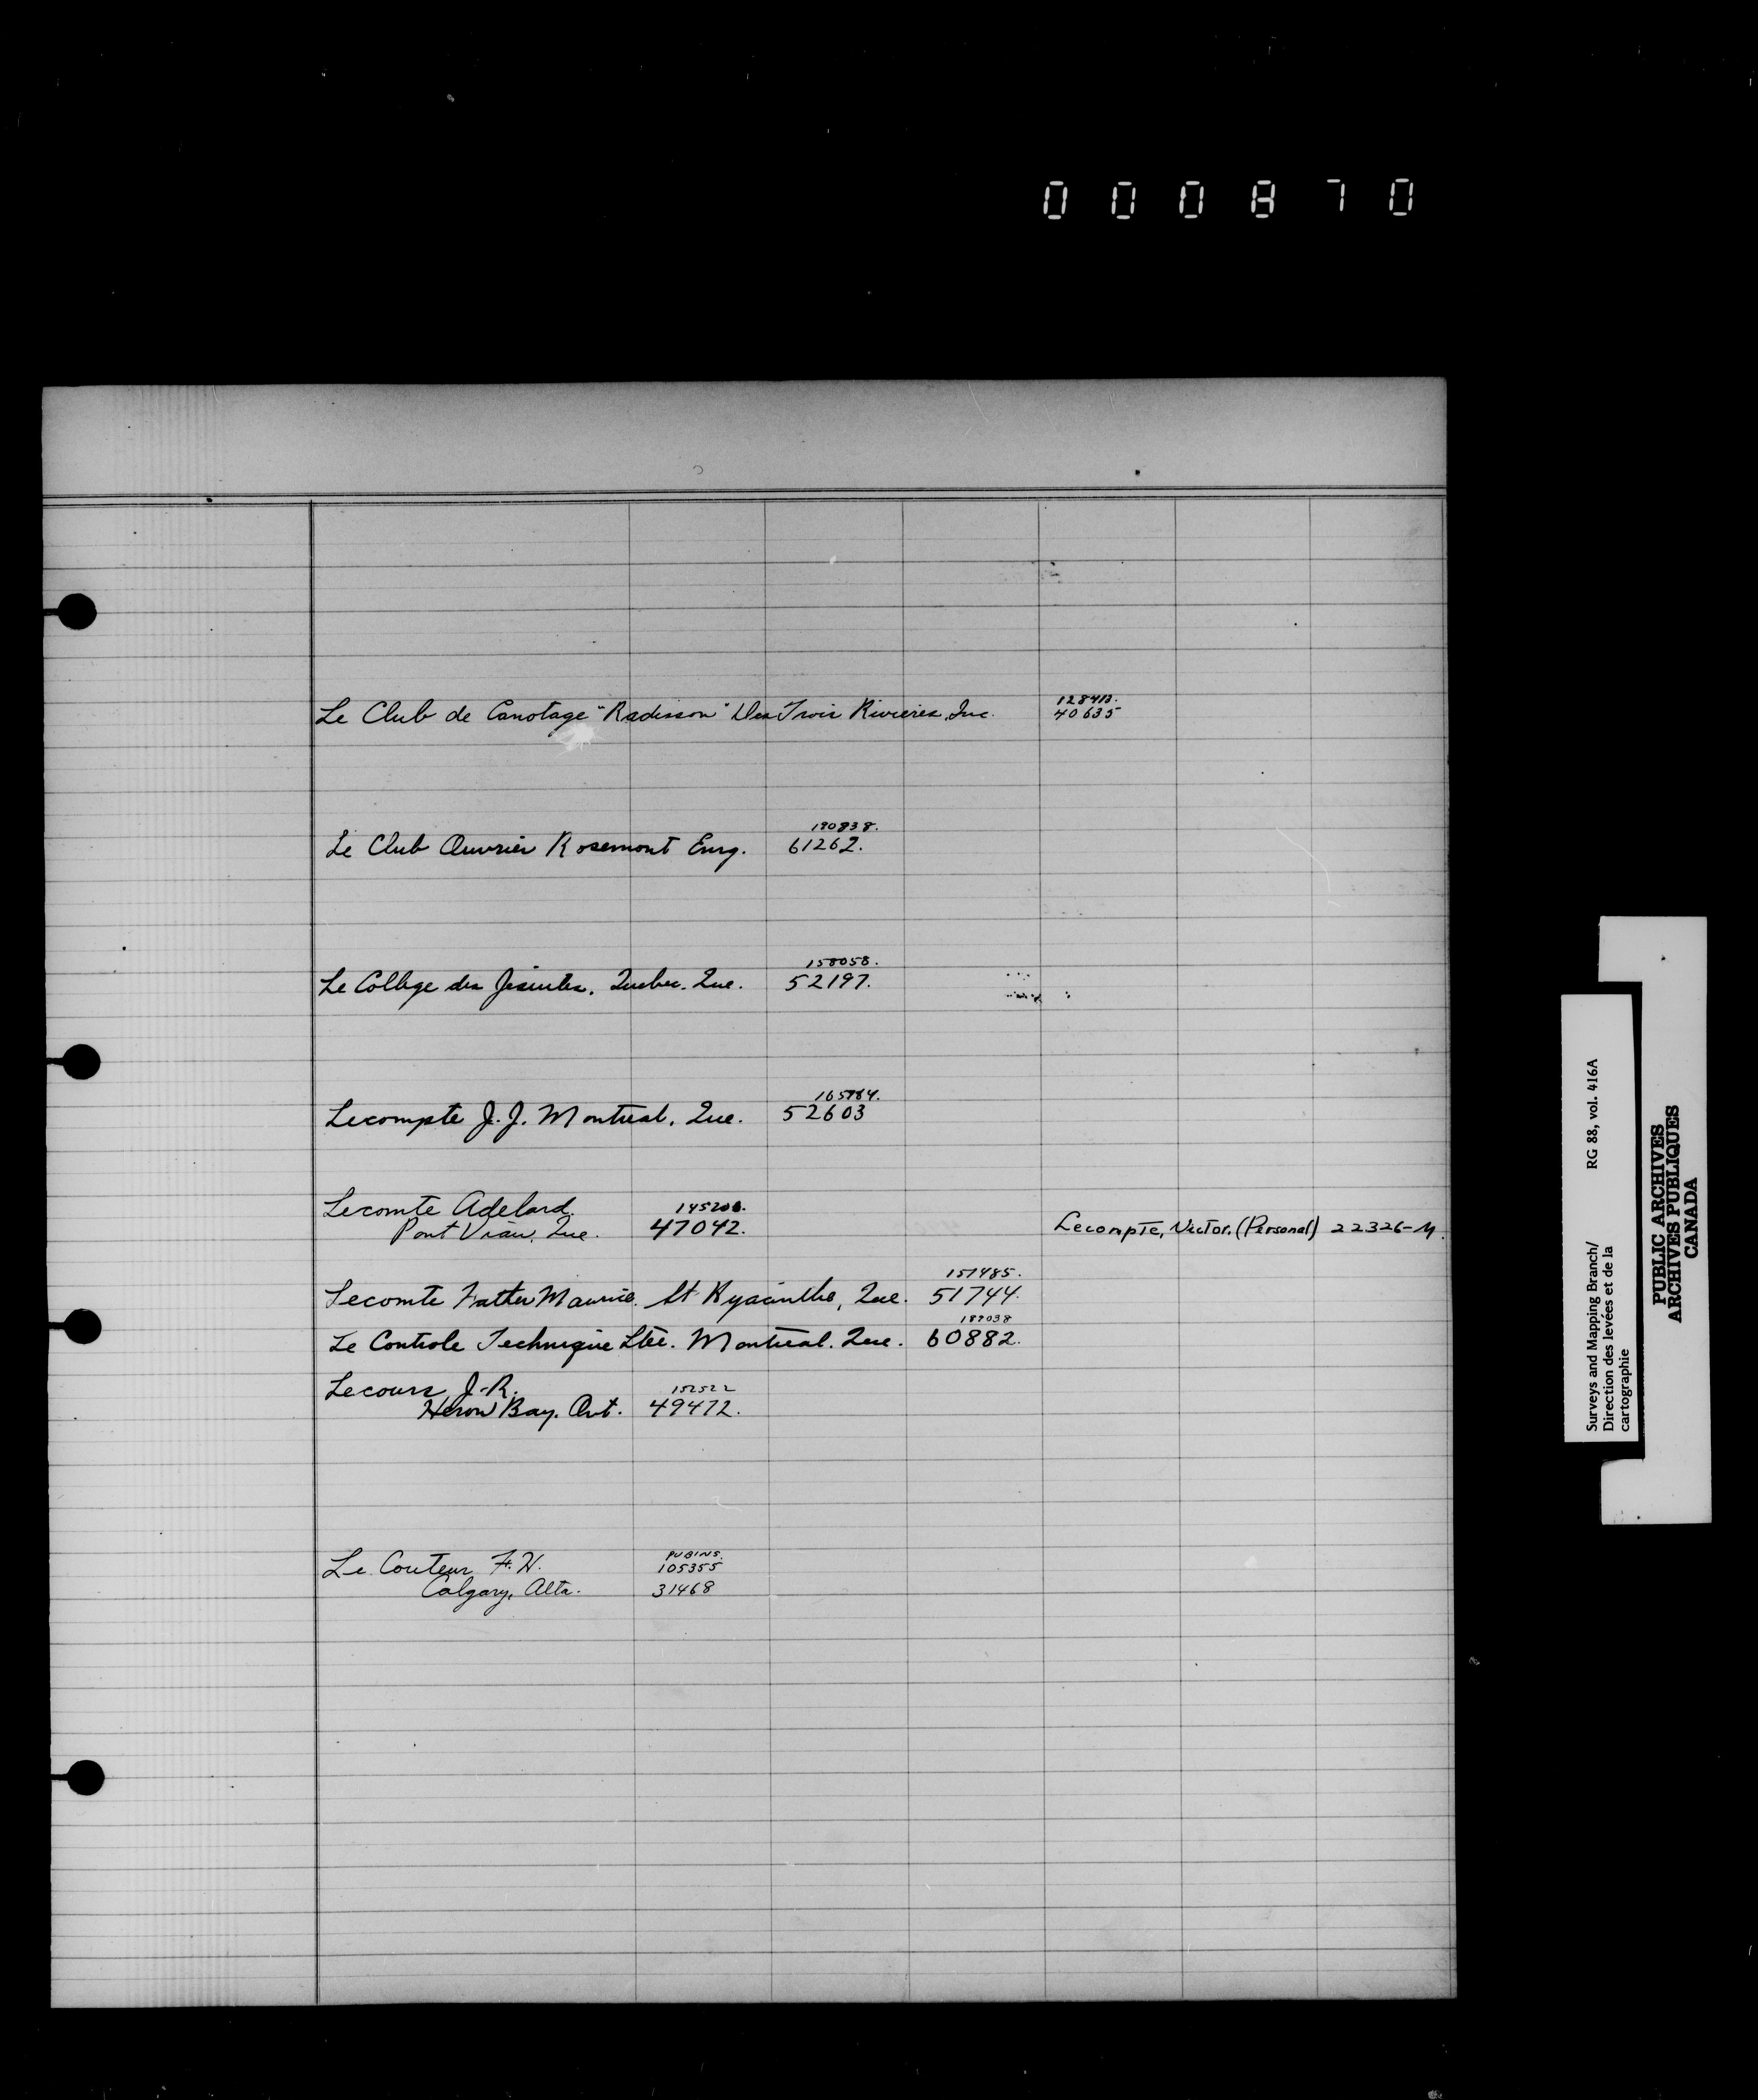 000870
128413.
Le Club de Canotage "Radisson" Des Trois Rivieres, Inc. 40635
190838.
Le Club Ouvrier Rosemont Enrg. 61262.
158058.
Le College des Jesuites, Quebec. Que. 52197.
Lecompte J. J. Montreal, Que. 52603
Lecomte Adelard. 145206.
Pont Viau, Que. 47042. Lecompte, Victor. (Personal) 22326-M.
157485.
Lecomte Father Maurice. St Hyacinthe, Que. 51744.
189038
Le Controle Technique Ltée. Montreal. Que. 60882.
Lecours, J-R. 152522
Heron Bay. Ont. 49472.
PUBINS.
Le Couteur, F. H. 105355
Calgary, Alta. 31468
Surveys and Mapping Branch/ RG 88, vol. 416A
Direction des levées et de la
cartographie
PUBLIC ARCHIVES
ARCHIVES PUBLIQUES
CANADA